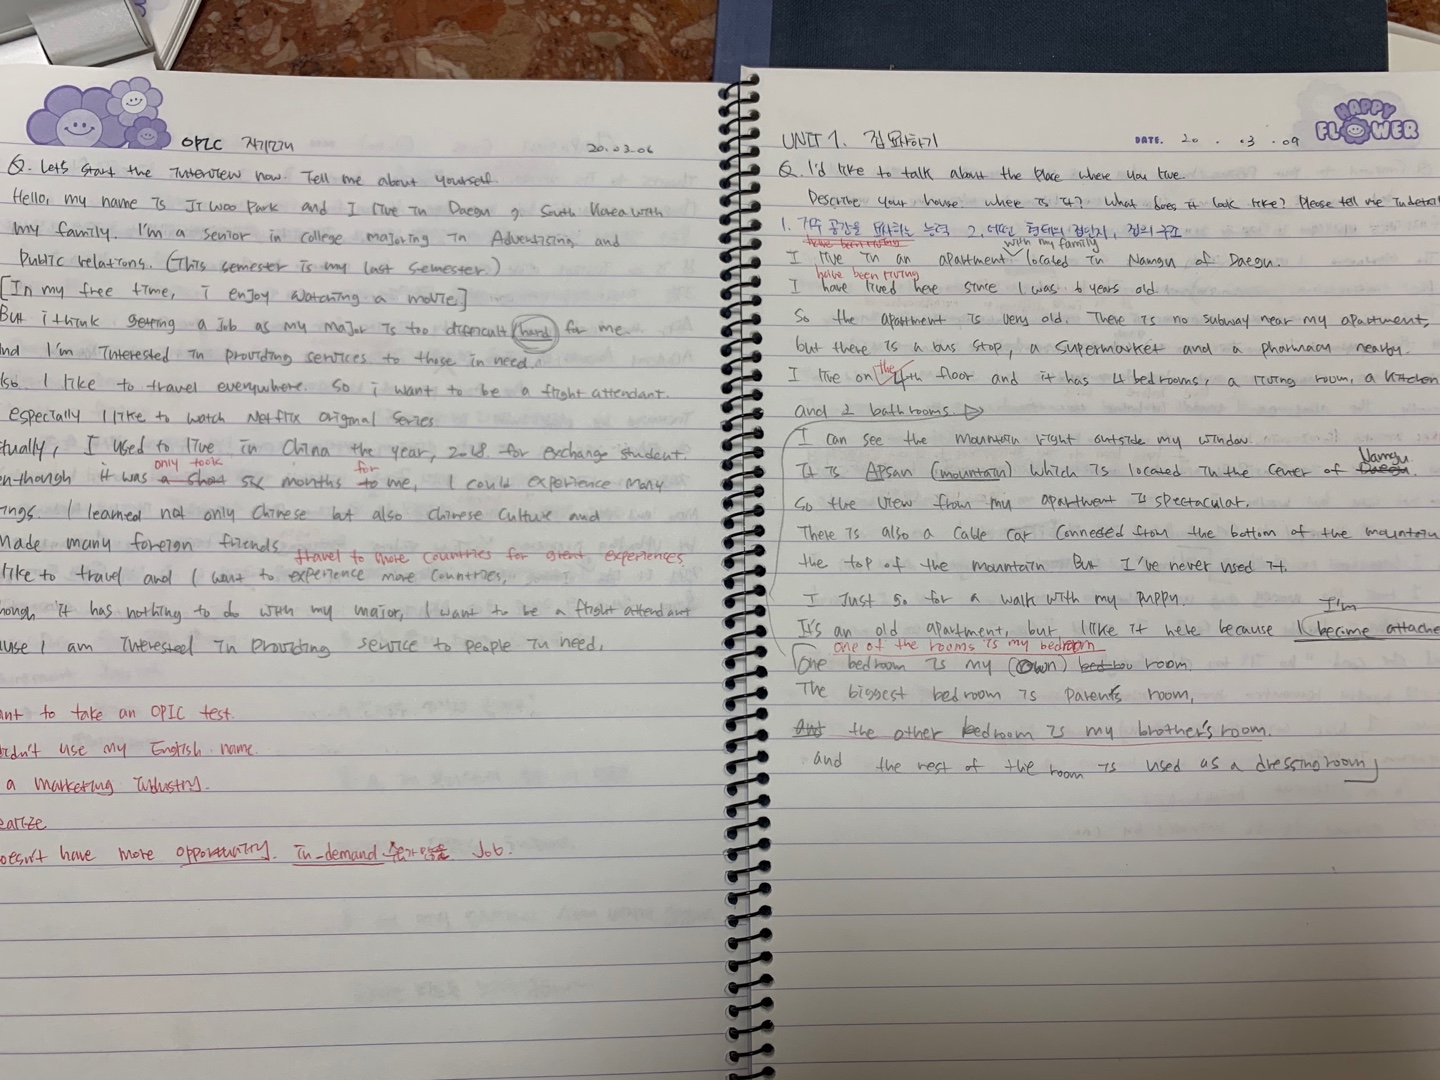 OPIC 자기소개 20.03.06
Q. Let's start the Interview now. Tell me about yourself.
Hello, my name is Ji Woo Park and I live in Daegu, South Korea with
my family. I'm a senior in college majoring in Advertising and
Public relations. (This semester is my last semester.)
[In my free time, i enjoy watching a movie]
But i think getting a Job as my major is too difficult (hard) for me.
nd I'm Interested in providing services to those in need.
lso. I like to travel everywhere. So i want to be a flight attendant.
especially I like to watch Netflix original series.
ctually, I used to live in China the year, 2018 for exchange student.
only took for
en though it was a short six months to me, I could experience many
ings. I learned not only Chinese but also Chinese culture and
Made many foreign friends
travel to more countries for great experiences
like to travel and I want to experience more countries,
hough, it has nothing to do with my major, I want to be a flight attendant
ause I am Interested in providing service to people in need.
ant to take an OPIC test.
didn't use my English name.
a marketing industry.
ealize
doesn't have more opportunity. in-demand 수요가 많은 Job.
HAPPY FLOWER
UNIT 1. 집 묘사하기 DATE. 20 . 03 . 09
Q. I'd like to talk about the place where you live.
Describe your house. where is it? What does it look like? Please tell me in detail
1. 거주 공간을 묘사하는 능력 2. 어떤 형태의 집인지, 집의 구조
have been living with my family
I live in an apartment located in Namgu of Daegu.
have been living
I have lived here since I was 6 years old.
So the apartment is very old. There is no subway near my apartment,
but there is a bus stop, a supermarket and a pharmacy nearby.
I live on the 4th floor and it has 4 bedrooms, a living room, a kitchen
and 2 bathrooms.
I can see the mountain right outside my window.
Namgu
It is Apsan (mountain) which is located in the center of Daegu.
So the view from my apartment is spectacular.
There is also a cable car connected from the bottom of the mountain
the top of the mountain But I've never used it.
I Just go for a walk with my puppy.
I'm
It's an old apartment, but I like it here because I became attache
one of the rooms is my bedroom
One bedroom is my (own) room.
The biggest bedroom is parent's room,
and the other bedroom is my brother's room.
and the rest of the room is used as a dressing room